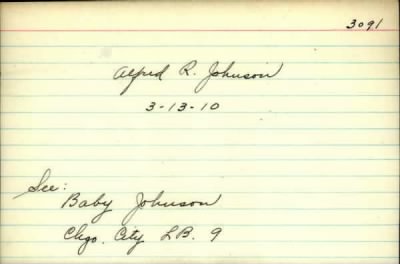 3091
Alfred R. Johnson
3-13-10
See:
Baby Johnson
Chgo. City LB. 9